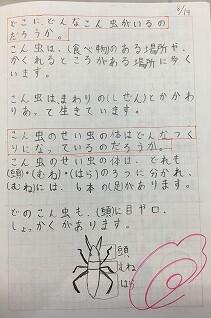 8/19
どこに、どんなこん虫がいるの
だろうか。
こん虫は、(食べ物)のある場所や、
かくれるところがある場所に多く
います。
こん虫は、まわりの(しぜん)とかかわ
りあって生きています。
こん虫のせい虫の体はどんなつく
りになっているのだろうか。
こん虫のせい虫の体は、どれも
(頭)・(むね)・(はら)の3つに分かれ、
(むね)には、6本の(足)があります。
どのこん虫も、(頭)に目や口、
しょっかくがあります。
頭
むね
はら